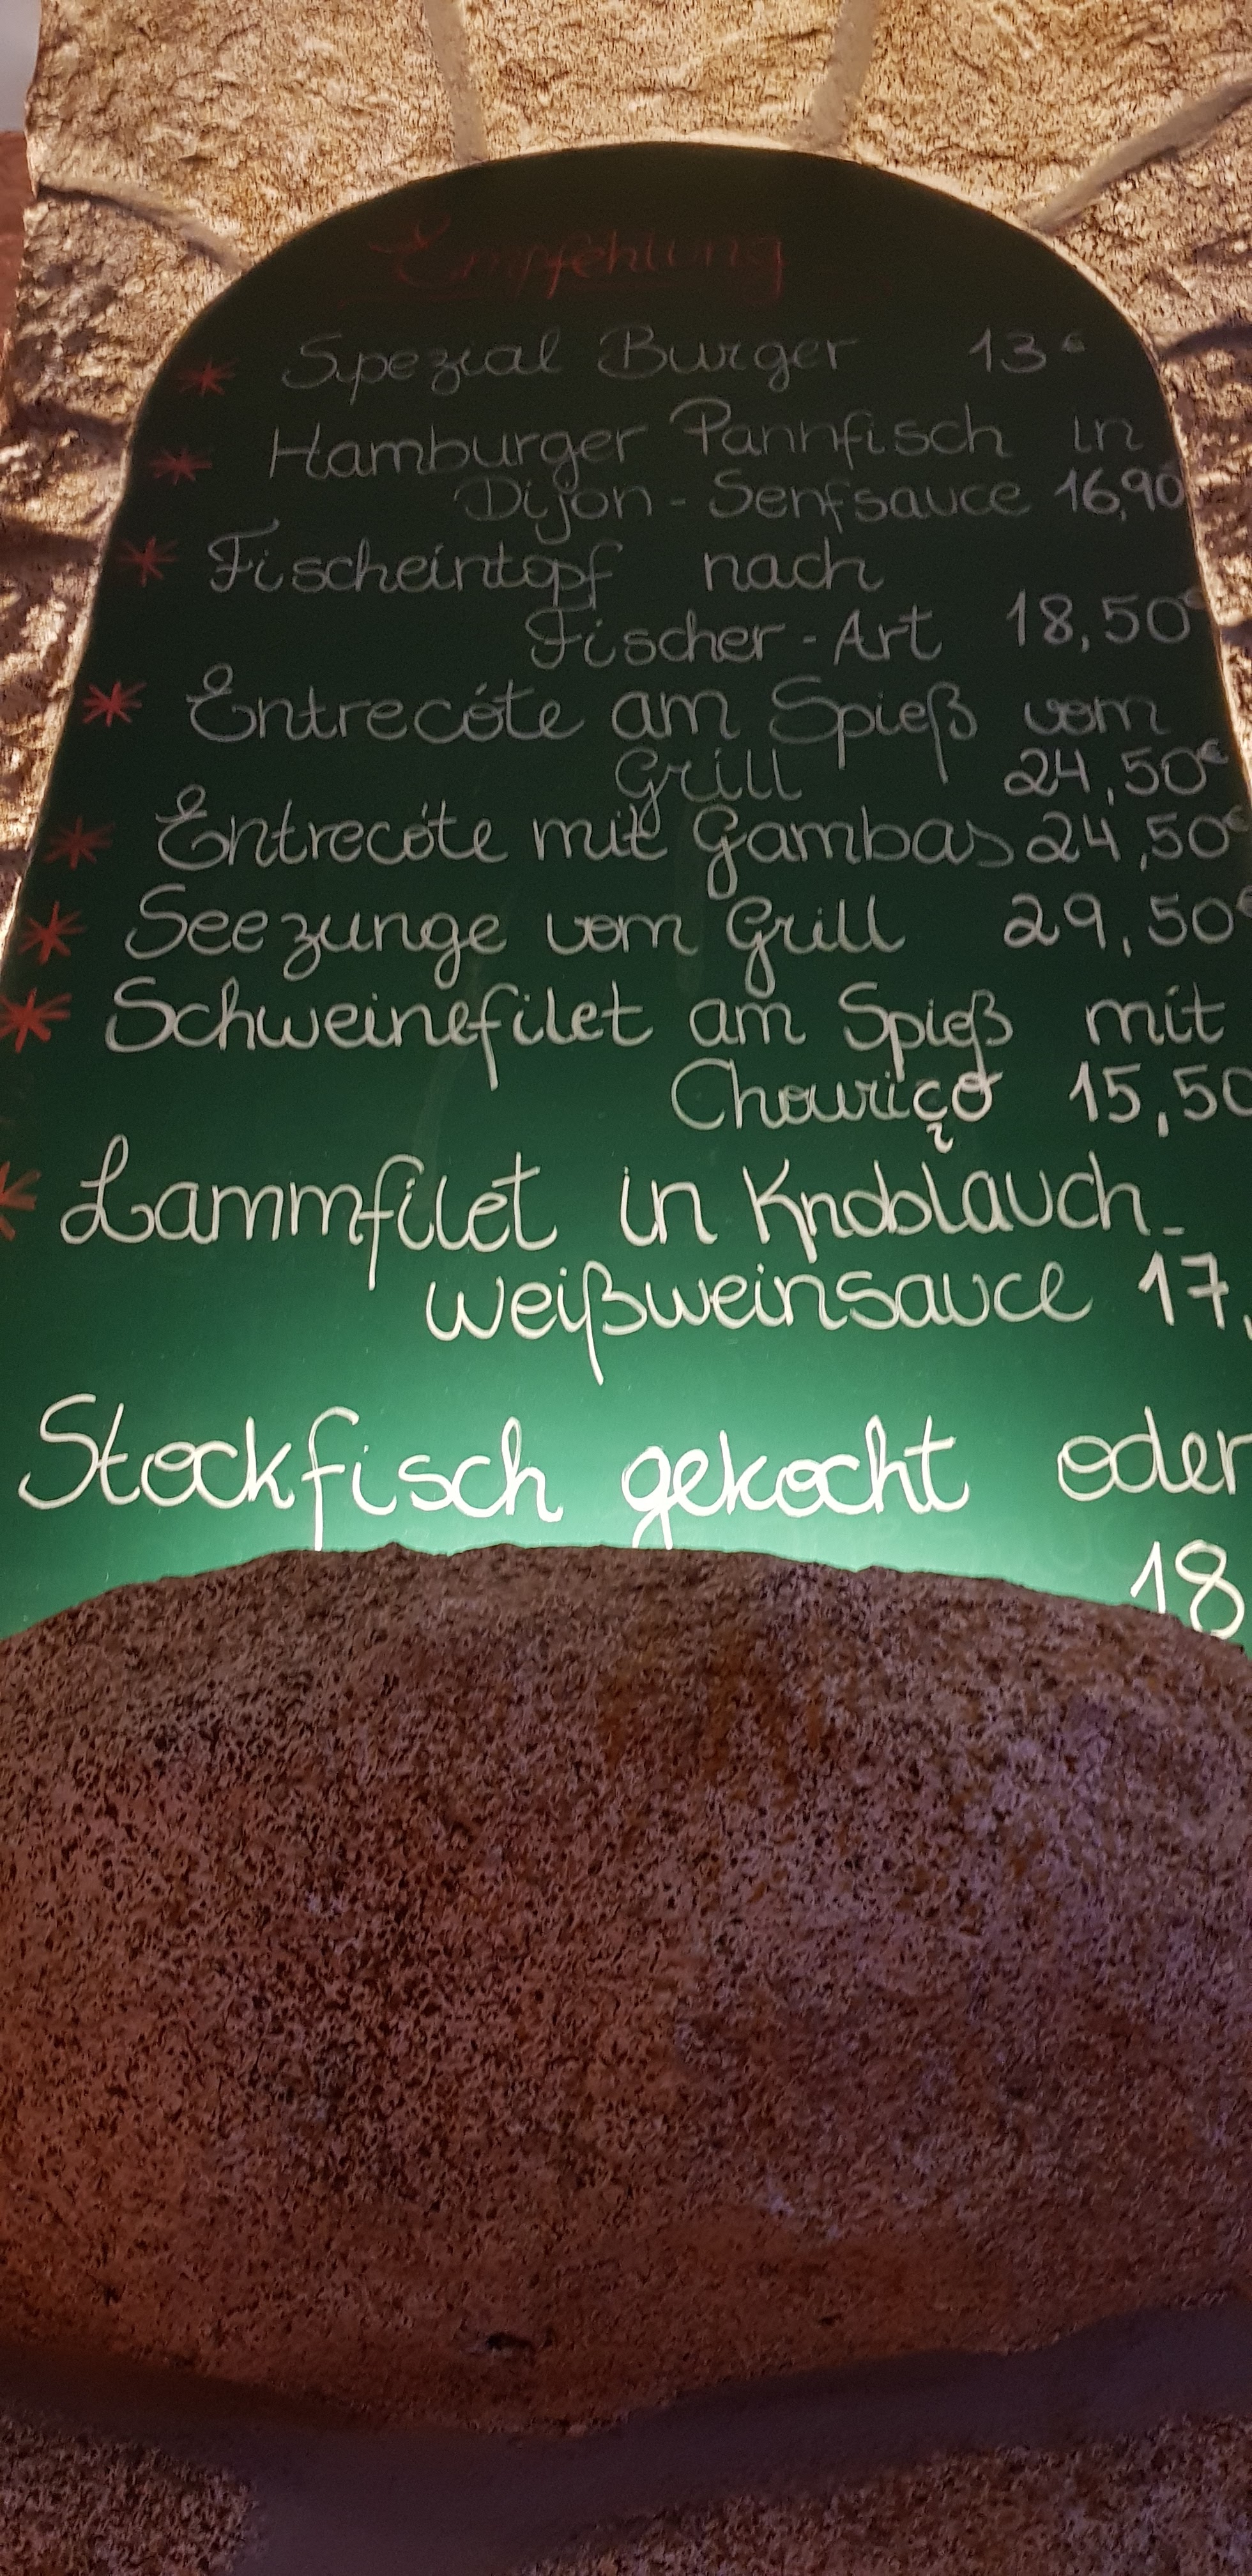 Empfehlung
* Spezial Burger 13€
* Hamburger Pannfisch in
Dijon - Senfsauce 16,90
* Fischeintopf nach
Fischer - Art 18,50€
* Entrecóte am Spieß vom
Grill 24,50€
* Entrecóte mit Gambas 24,50€
* Seezunge vom Grill 29,50€
* Schweinefilet am Spieß mit
Chouriço 15,50
* Lammfilet in Knoblauch-
weißweinsauce 17,
Stockfisch gekocht oder
18